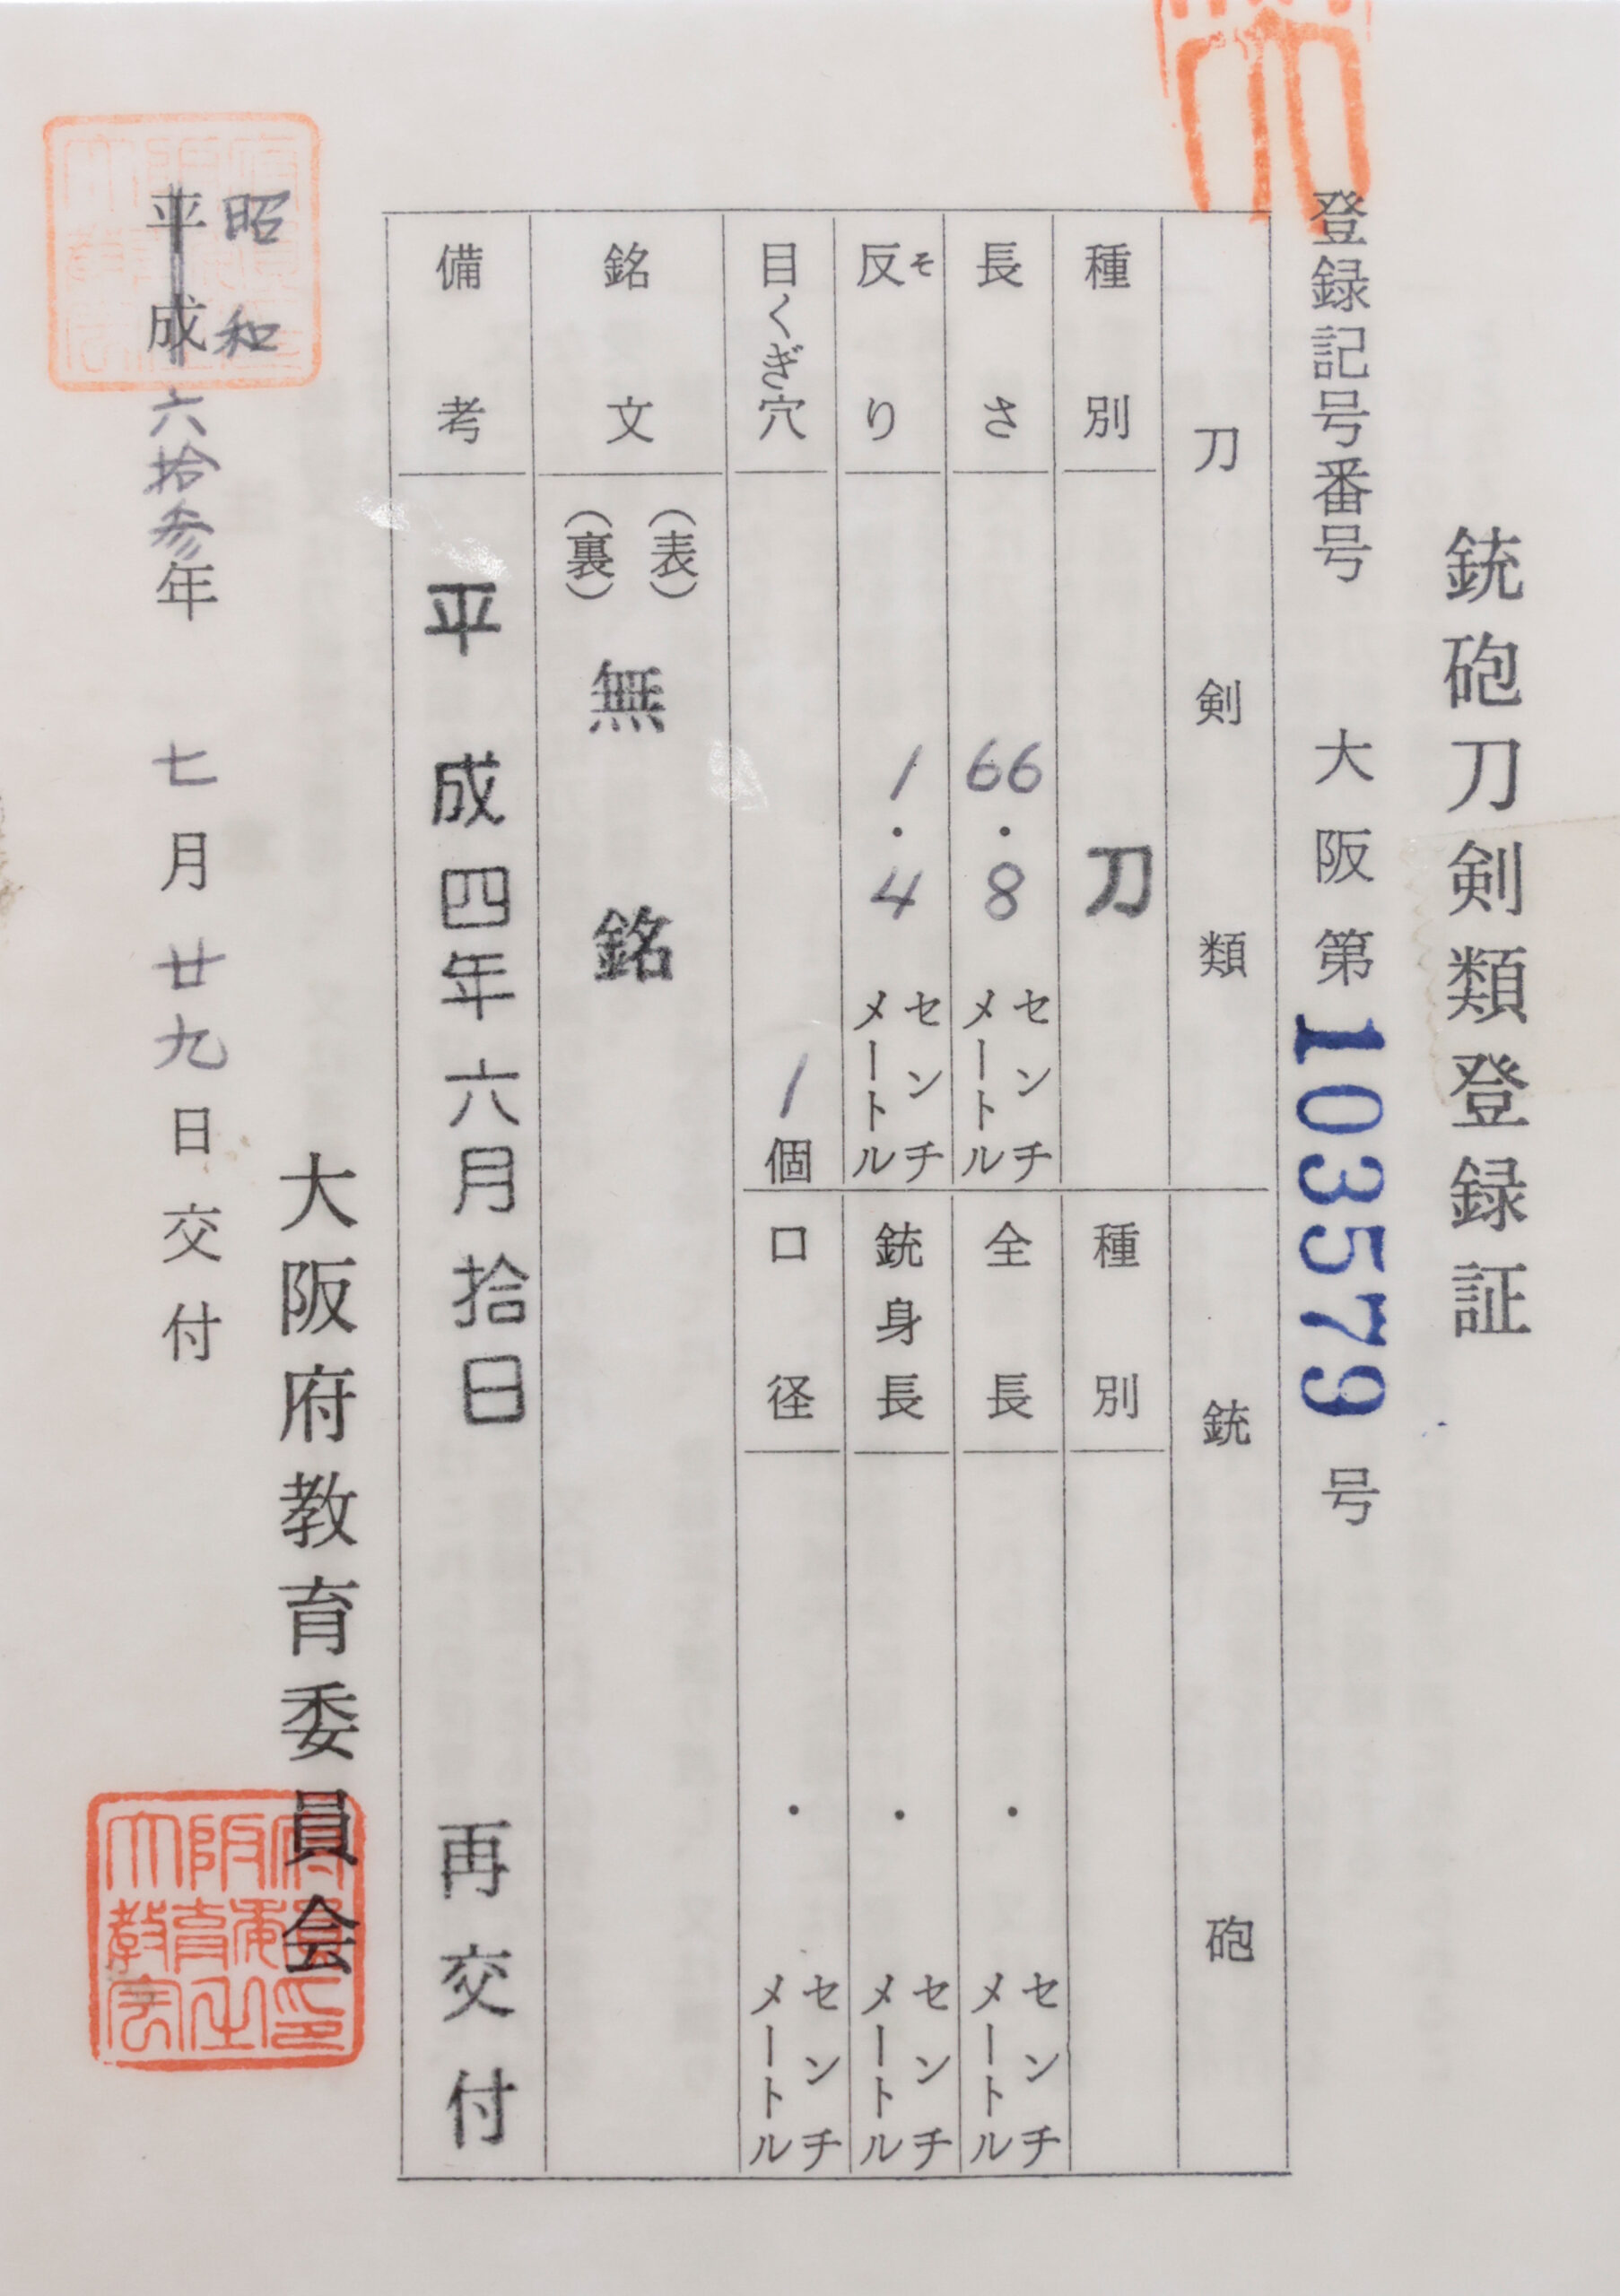 銃砲刀剣類登録証
登録記号番号 大阪第103579号
刀剣類
種別 刀
長さ 66・8 センチメートル
反り そ 1・4 センチメートル
目くぎ穴 1個
銃砲
種別
全長 ・ センチメートル
銃身長 ・ センチメートル
口径 ・ センチメートル
銘文 (表) (裏) 無銘
備考 平成四年六月拾日 再交付
大阪府教育委員会
昭和
平成六拾参年 七月廿九日交付
大阪府教育委員会之印